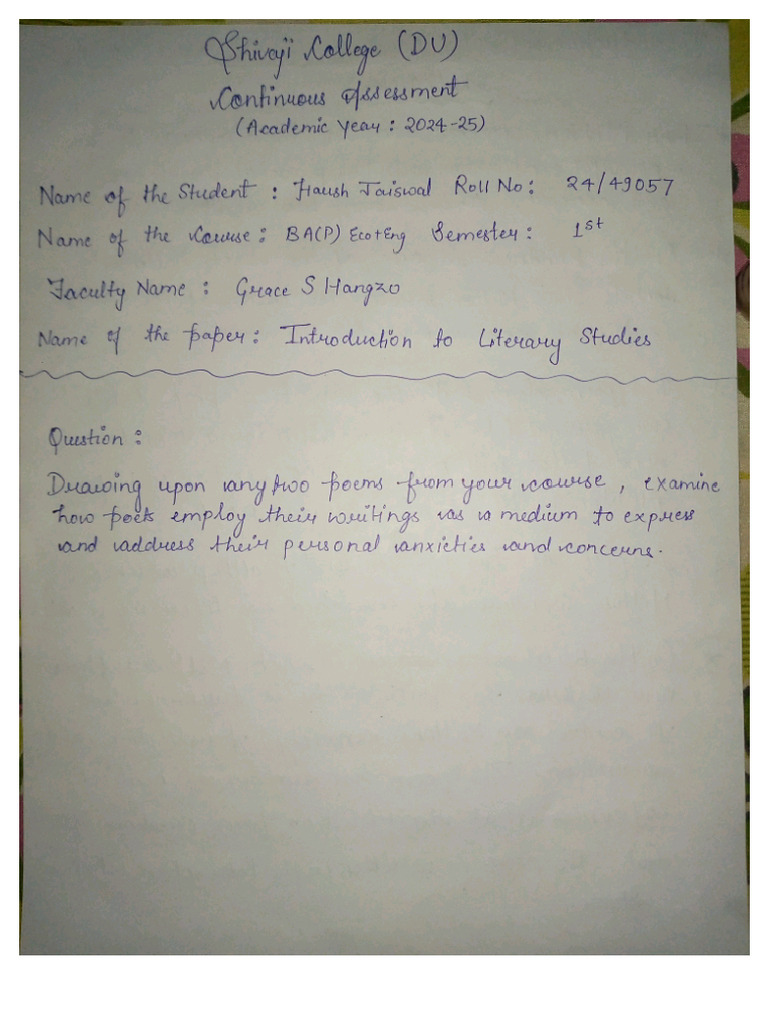 Shivaji College (DU)
Continuous Assessment
(Academic Year : 2024-25)
Name of the Student : Haush Jaiswal Roll No : 24/49057
Name of the Course : BA(P) Eco+Eng Semester : 1st
Faculty Name : Grace S Hangzo
Name of the paper : Introduction to Literary Studies
Question :
Drawing upon any two poems from your course, examine
how poets employ their writings as a medium to express
and address their personal anxieties and concerns.